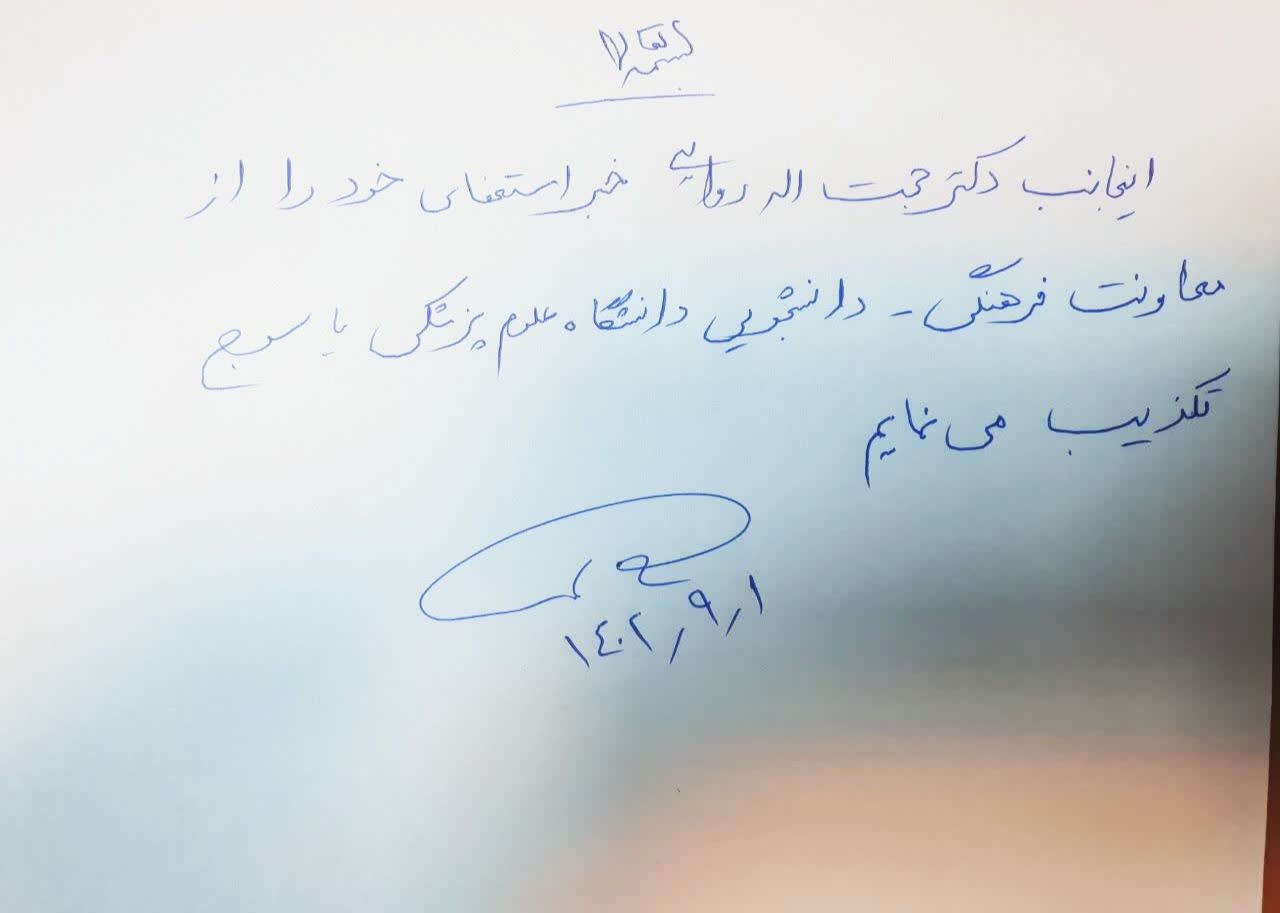 بسمه تعالی
اینجانب دکتر حجت اله روایی خبر استعفای خود را از
معاونت فرهنگی - دانشجویی دانشگاه علوم پزشکی یاسوج
تکذیب می نمایم
۱۴۰۲/۹/۱